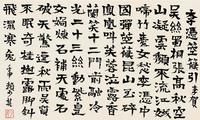 李憑箜篌引 李賀
吳絲蜀桐張高秋空
山凝雲頹不流江娥
啼竹素女愁李憑中
國彈箜篌崑山玉碎
鳳凰叫芙蓉泣露香
蘭笑十二門前融冷
光二十三絲動紫皇
女媧煉石補天處石
破天驚逗秋雨吳質
不眠倚桂樹露腳斜
飛濕寒兔